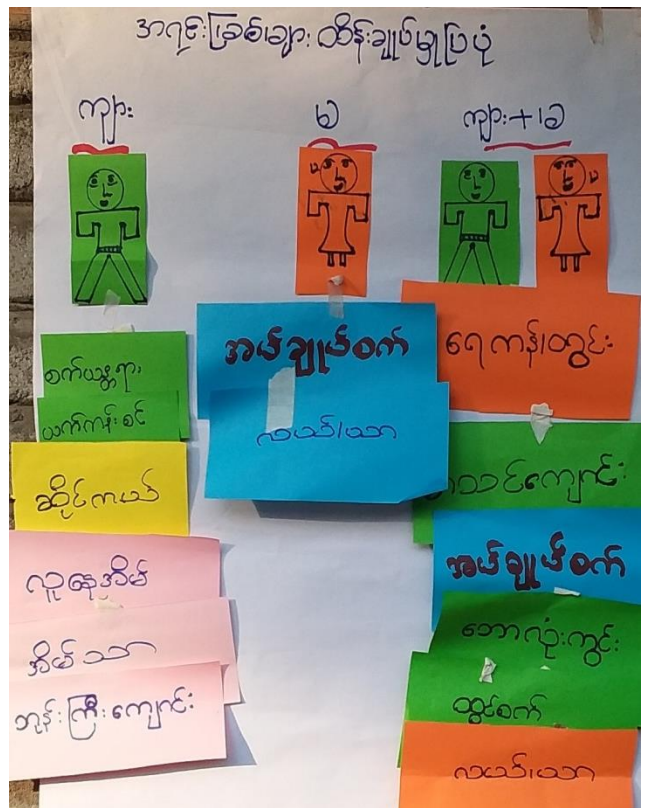 အရင်းအမြစ်များ ထိန်းချုပ်မှုပြပုံ
ကျား
မ
ကျား+မ
စက်ယန္တရား
ယက်ကန်းစင်
ဆိုင်ကယ်
လူနေအိမ်
အိမ်သာ
ဘုန်းကြီးကျောင်း
အပ်ချုပ်စက်
လယ်/ယာ
ရေကန်/တွင်း
စာသင်ကျောင်း
အပ်ချုပ်စက်
ဘောလုံးကွင်း
ထွန်စက်
လယ်/ယာ